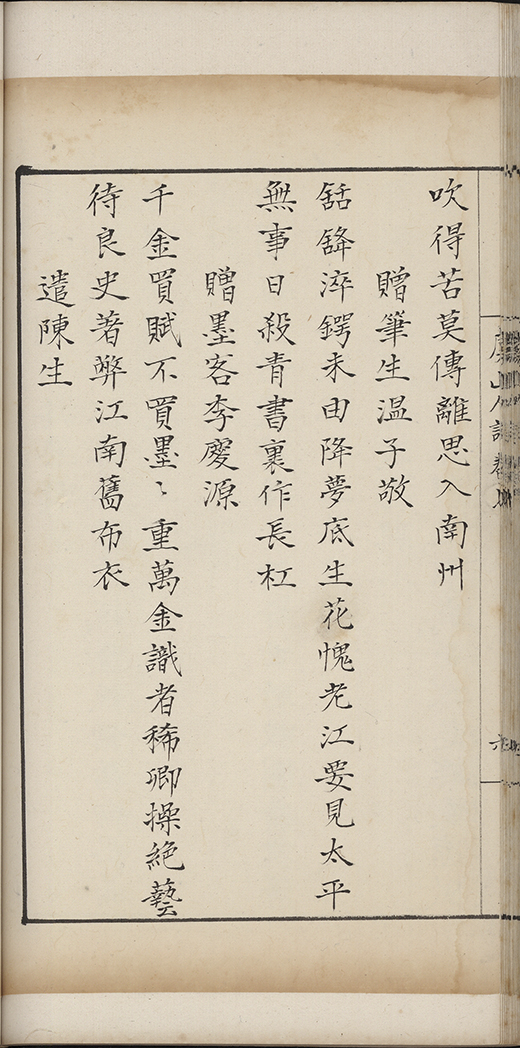 吹得苦莫傳離思入南州
贈筆生温子敬
銛鋒淬鍔未由降夢底生花愧老江要見太平
無事日殺青書裏作長杠
贈墨客李慶源
千金買賦不買墨〻重萬金識者稀卿操絶藝
待良史著弊江南舊布衣
遣陳生